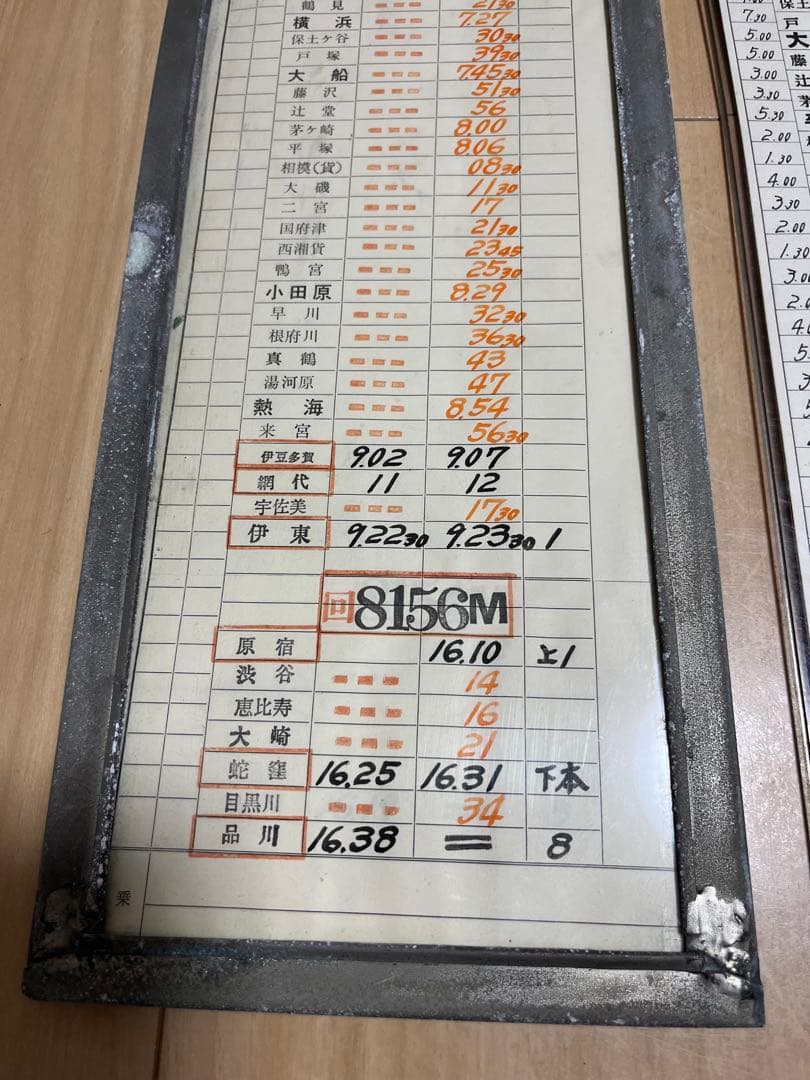 鶴見 21 30
横浜 7.27
保土ヶ谷 30 30
戸塚 39 30
大船 7.45 30
藤沢 51 30
辻堂 56
茅ヶ崎 8.00
平塚 8.06
相模(貨) 08 30
大磯 11 30
二宮 17
国府津 21 30
西湘貨 23 45
鴨宮 25 30
小田原 8.29
早川 32 30
根府川 36 30
真鶴 43
湯河原 47
熱海 8.54
来宮 56 30
伊豆多賀 9.02 9.07
網代 11 12
宇佐美 17 30
伊東 9.22 30 9.23 30 1
回8156M
原宿 16.10 上1
渋谷 14
恵比寿 16
大崎 21
蛇窪 16.25 16.31 下本
目黒川 34
品川 16.38 = 8
乗
7.30
5.00 戸
5.00 大
3.00 藤
3.30 辻
5.30 茅
2.00
1.30
4.00
3.30
2.00
1.30
3.00